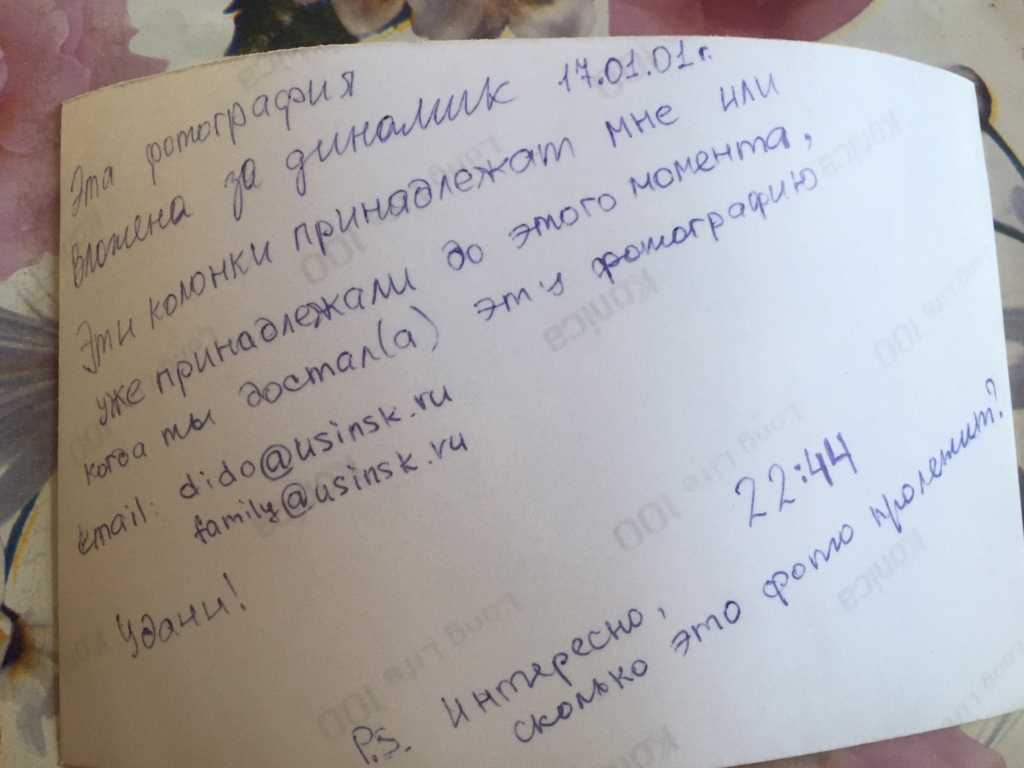 Эта фотография
вложена за динамик 17.01.01г.
Эти колонки принадлежат мне или
уже принадлежали до этого момента,
когда ты достал(а) эту фотографию
email: dido@usinsk.ru
family@usinsk.ru
22:44
Удачи!
P.S. Интересно,
сколько это фото пролежит?
Konica
Long Life 100